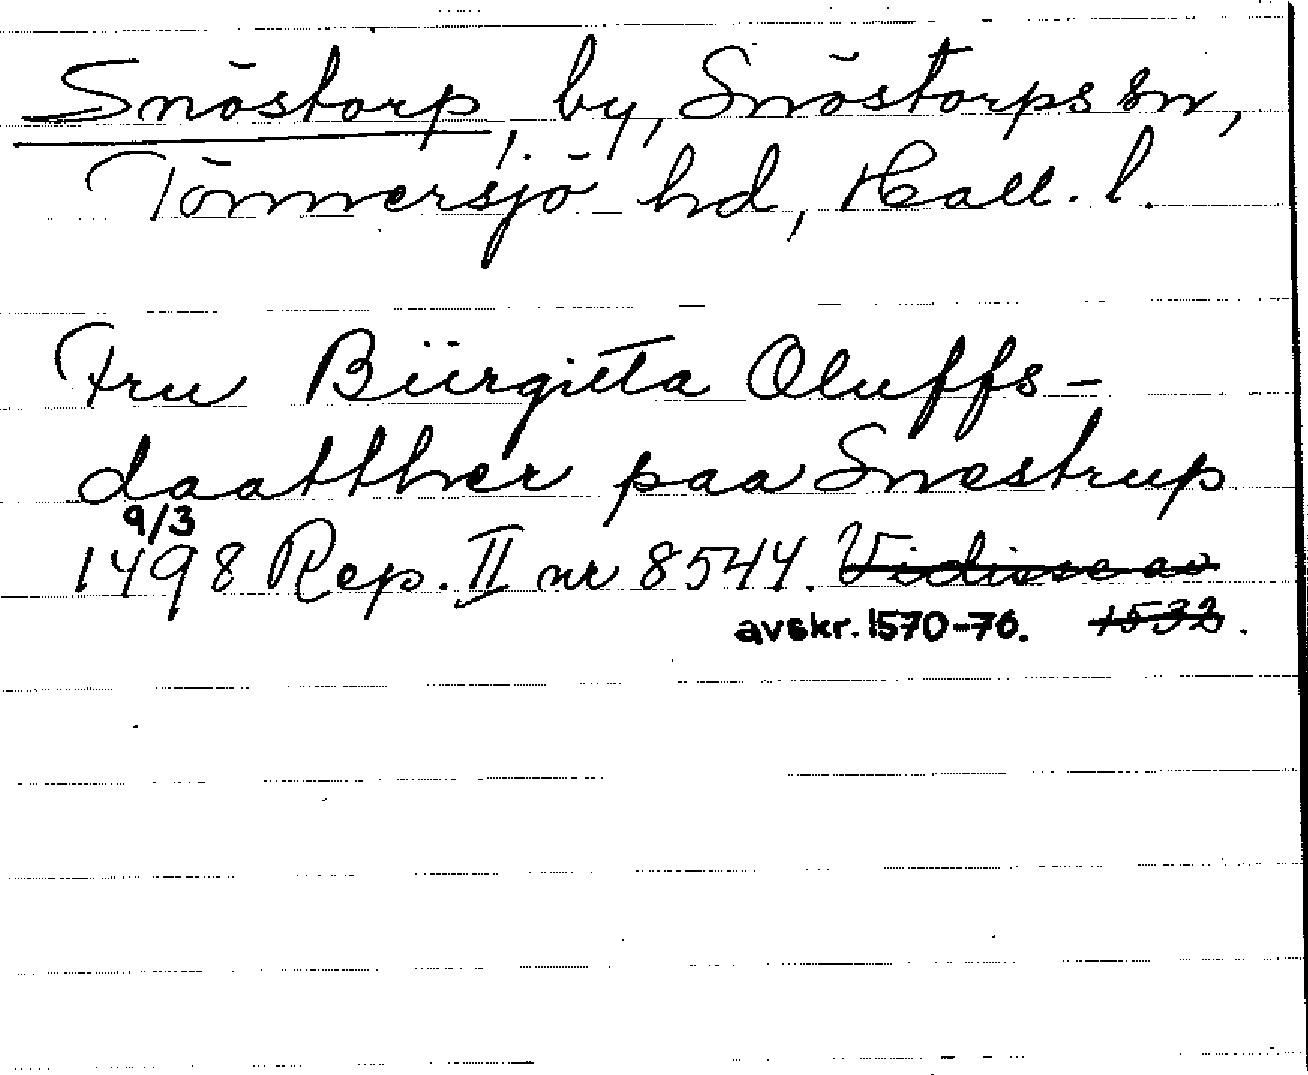 Snöstorp, by, Snöstorps sn,
Tönnersjö hd, Hall. l.
Fru Biirgitta Oluffs-
daatther paa Snestrup
9/3
1498 Rep. II nr 8544. Vidisse av
avskr. 1570-76. 1532.